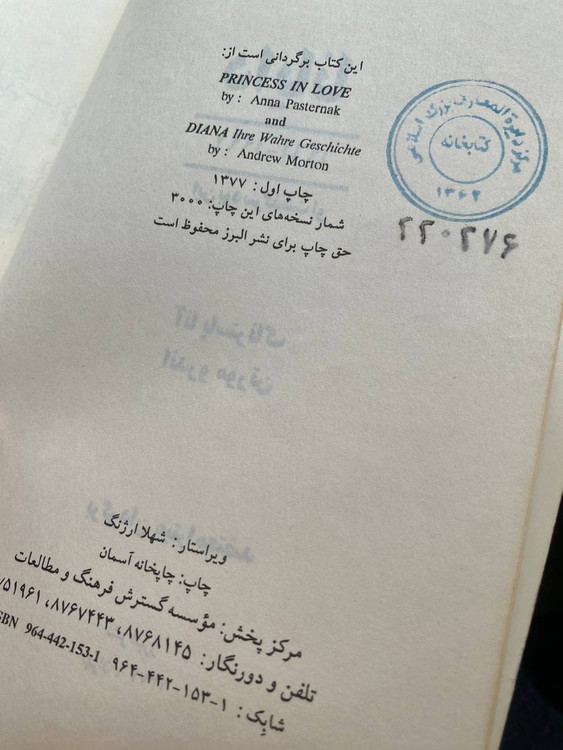 این کتاب برگردانی است از:
PRINCESS IN LOVE
by: Anna Pasternak
and
DIANA Ihre Wahre Geschichte
by: Andrew Morton
چاپ اول: ۱۳۷۷
شمار نسخه‌های این چاپ: ۳۰۰۰
حق چاپ برای نشر البرز محفوظ است
مرکز دایرة المعارف بزرگ اسلامی
کتابخانه
۱۳۶۲
۲۲۰۲۷۶
ویراستار: شهلا ارژنگ
چاپ: چاپخانه آسمان
مرکز پخش: مؤسسه گسترش فرهنگ و مطالعات
تلفن و دورنگار: ۸۷۶۸۱۴۵، ۸۷۶۷۴۴۳، ۷۵۱۹۶۱
شابک: ۱-۱۵۳-۴۴۲-۹۶۴ 964-442-153-1